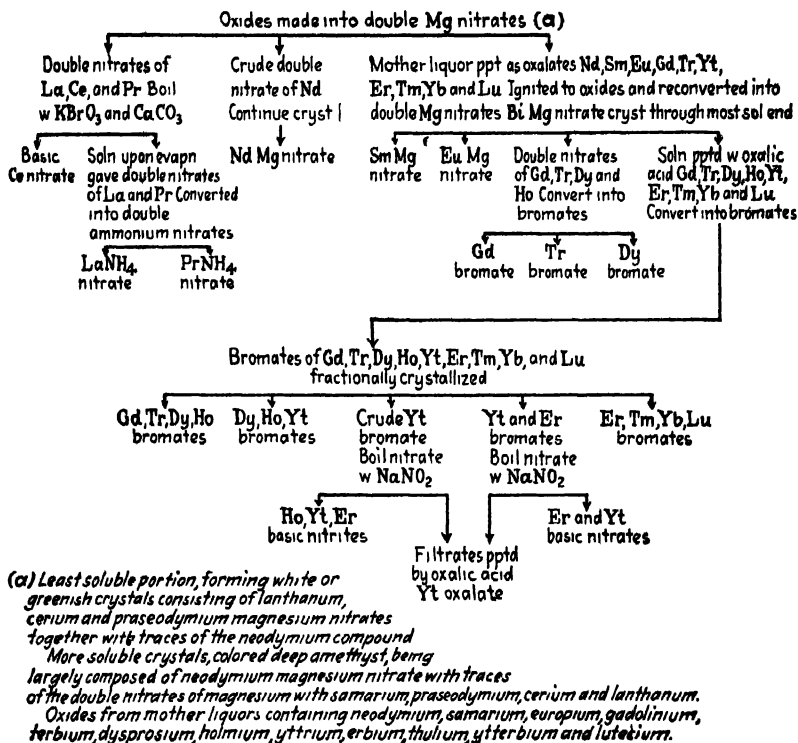 Oxides made into double Mg nitrates (a)
Double nitrates of
La, Ce, and Pr Boil
w KBrO3 and CaCO3
Crude double
nitrate of Nd
Continue cryst
Mother liquor ppt as oxalates Nd, Sm, Eu, Gd, Tr, Yt,
Er, Tm, Yb and Lu Ignited to oxides and reconverted into
double Mg nitrates Bi Mg nitrate cryst through most sol end
Basic
Ce nitrate
Soln upon evapn
gave double nitrates
of La and Pr Converted
into double
ammonium nitrates
Nd Mg nitrate
Sm Mg
nitrate
Eu Mg
nitrate
Double nitrates
of Gd, Tr, Dy and
Ho Convert into
bromates
Soln pptd w oxalic
acid Gd, Tr, Dy, Ho, Yt,
Er, Tm, Yb and Lu
Convert into bromates
LaNH4
nitrate
PrNH4
nitrate
Gd
bromate
Tr
bromate
Dy
bromate
Bromates of Gd, Tr, Dy, Ho, Yt, Er, Tm, Yb, and Lu
fractionally crystallized
Gd, Tr, Dy, Ho
bromates
Dy, Ho, Yt
bromates
Crude Yt
bromate
Boil nitrate
w NaNO2
Yt and Er
bromates
Boil nitrate
w NaNO2
Er, Tm, Yb, Lu
bromates
Ho, Yt, Er
basic nitrites
Er and Yt
basic nitrates
Filtrates pptd
by oxalic acid
Yt oxalate
(a) Least soluble portion, forming white or
greenish crystals consisting of lanthanum,
cerium and praseodymium magnesium nitrates
together with traces of the neodymium compound
More soluble crystals, colored deep amethyst, being
largely composed of neodymium magnesium nitrate with traces
of the double nitrates of magnesium with samarium, praseodymium, cerium and lanthanum.
Oxides from mother liquors containing neodymium, samarium, europium, gadolinium,
terbium, dysprosium, holmium, yttrium, erbium, thulium, ytterbium and lutecium.